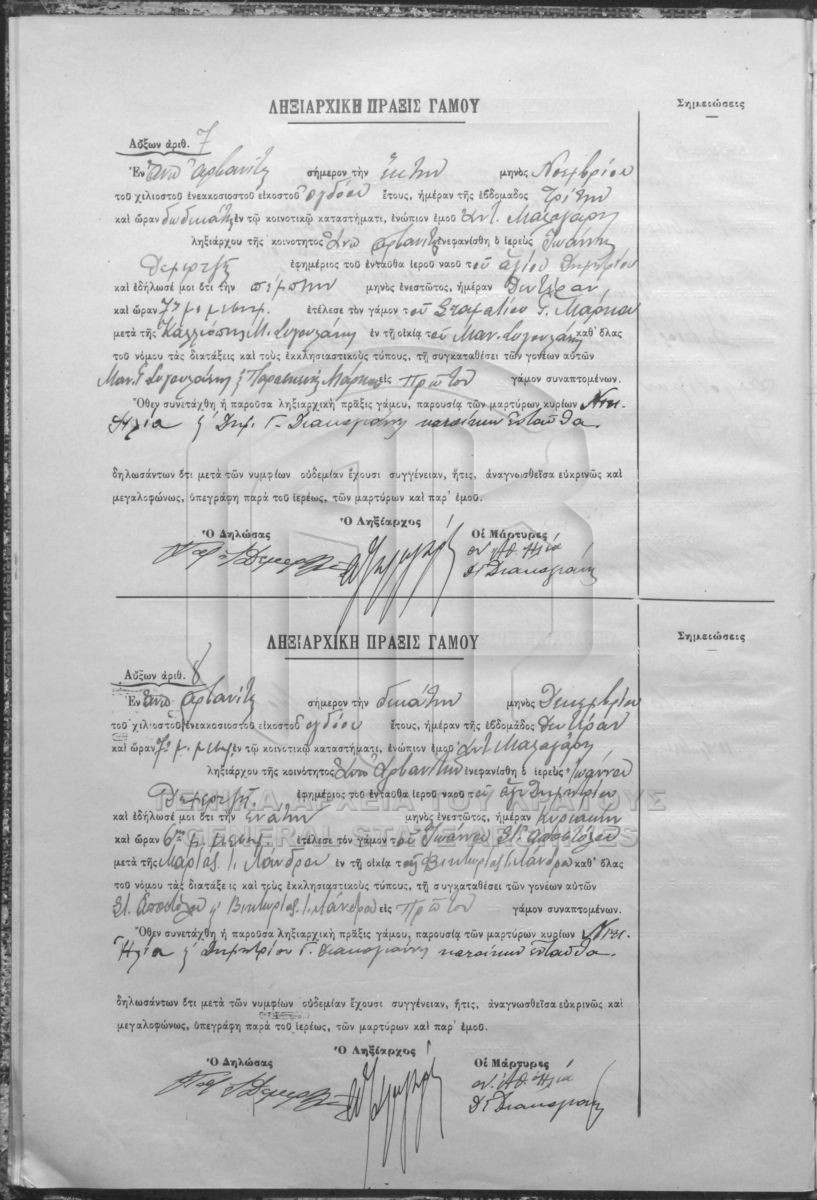 ΛΗΞΙΑΡΧΙΚΗ ΠΡΑΞΙΣ ΓΑΜΟΥ
Σημειώσεις
Αὔξων ἀριθ. 7
Ἐν Ἄνω Ἀρβανίτη σήμερον τὴν ἕκτην μηνὸς Νοεμβρίου
τοῦ χιλιοστοῦ ἐνεακοσιοστοῦ εἰκοστοῦ ὀγδόου ἔτους, ἡμέραν τῆς ἑβδομάδος Τρίτην
καὶ ὥραν δωδεκάτην ἐν τῷ κοινοτικῷ καταστήματι, ἐνώπιον ἐμοῦ
ληξιάρχου τῆς κοινότητος Ἄνω Ἀρβανίτη ἐνεφανίσθη ὁ ἱερεὺς Ἰωάννης
ἐφημέριος τοῦ ἐνταῦθα ἱεροῦ ναοῦ τοῦ ἁγίου Δημητρίου
καὶ ἐδήλωσέ μοι ὅτι τὴν πέμπτην μηνὸς ἐνεστῶτος, ἡμέραν Δευτέραν
καὶ ὥραν 7ην μ. μεσημ. ἐτέλεσε τὸν γάμον τοῦ Σταματίου Γ. Μάρκου
μετὰ τῆς Καλλιόπης Μ. ἐν τῇ οἰκίᾳ τοῦ Μαν. καθ' ὅλας
τοῦ νόμου τὰς διατάξεις καὶ τοὺς ἐκκλησιαστικοὺς τύπους, τῇ συγκαταθέσει τῶν γονέων αὐτῶν
Μαν. Γ. Μάρκου εἰς πρῶτον γάμον συναπτομένων.
Ὅθεν συνετάχθη ἡ παροῦσα ληξιαρχικὴ πρᾶξις γάμου, παρουσίᾳ τῶν μαρτύρων κυρίων Νικ.
Ἠλία Δημ. Γ. Διακογιάννη κατοίκων ἐνταῦθα.
δηλωσάντων ὅτι μετὰ τῶν νυμφίων οὐδεμίαν ἔχουσι συγγένειαν, ἥτις, ἀναγνωσθεῖσα εὐκρινῶς καὶ
μεγαλοφώνως, ὑπεγράφη παρὰ τοῦ ἱερέως, τῶν μαρτύρων καὶ παρ' ἐμοῦ.
Ὁ Δηλώσας
Ὁ Ληξίαρχος
Οἱ Μάρτυρες
ΛΗΞΙΑΡΧΙΚΗ ΠΡΑΞΙΣ ΓΑΜΟΥ
Σημειώσεις
Αὔξων ἀριθ. 8
Ἐν Ἄνω Ἀρβανίτη σήμερον τὴν δεκάτην μηνὸς Δεκεμβρίου
τοῦ χιλιοστοῦ ἐνεακοσιοστοῦ εἰκοστοῦ ὀγδόου ἔτους, ἡμέραν τῆς ἑβδομάδος Δευτέραν
καὶ ὥραν 7ην μ. μεσημ. ἐν τῷ κοινοτικῷ καταστήματι, ἐνώπιον ἐμοῦ
ληξιάρχου τῆς κοινότητος Ἄνω Ἀρβανίτη ἐνεφανίσθη ὁ ἱερεὺς Ἰωάννου
ἐφημέριος τοῦ ἐνταῦθα ἱεροῦ ναοῦ τοῦ ἁγ. Δημητρίου
ΓΕΝΙΚΑ ΑΡΧΕΙΑ ΤΟΥ ΚΡΑΤΟΥΣ
καὶ ἐδήλωσέ μοι ὅτι τὴν ἐνάτην μηνὸς ἐνεστῶτος, ἡμέραν Κυριακὴν
GENERAL STATE ARCHIVES
καὶ ὥραν 6ην μ. μεσημ. ἐτέλεσε τὸν γάμον τοῦ Ἰωάννου Ἀποστόλου
μετὰ τῆς Μαρίας Ι. Μάνδρου ἐν τῇ οἰκίᾳ τῆς Βικτωρίας Ι. Μάνδρου καθ' ὅλας
τοῦ νόμου τὰς διατάξεις καὶ τοὺς ἐκκλησιαστικοὺς τύπους, τῇ συγκαταθέσει τῶν γονέων αὐτῶν
Ἀποστόλου Βικτωρίας Ι. Μάνδρου εἰς πρῶτον γάμον συναπτομένων.
Ὅθεν συνετάχθη ἡ παροῦσα ληξιαρχικὴ πρᾶξις γάμου, παρουσίᾳ τῶν μαρτύρων κυρίων Νικ.
Ἠλία Δημητρίου Γ. Διακογιάννη κατοίκων ἐνταῦθα.
δηλωσάντων ὅτι μετὰ τῶν νυμφίων οὐδεμίαν ἔχουσι συγγένειαν, ἥτις, ἀναγνωσθεῖσα εὐκρινῶς καὶ
μεγαλοφώνως, ὑπεγράφη παρὰ τοῦ ἱερέως, τῶν μαρτύρων καὶ παρ' ἐμοῦ.
Ὁ Δηλώσας
Ὁ Ληξίαρχος
Οἱ Μάρτυρες